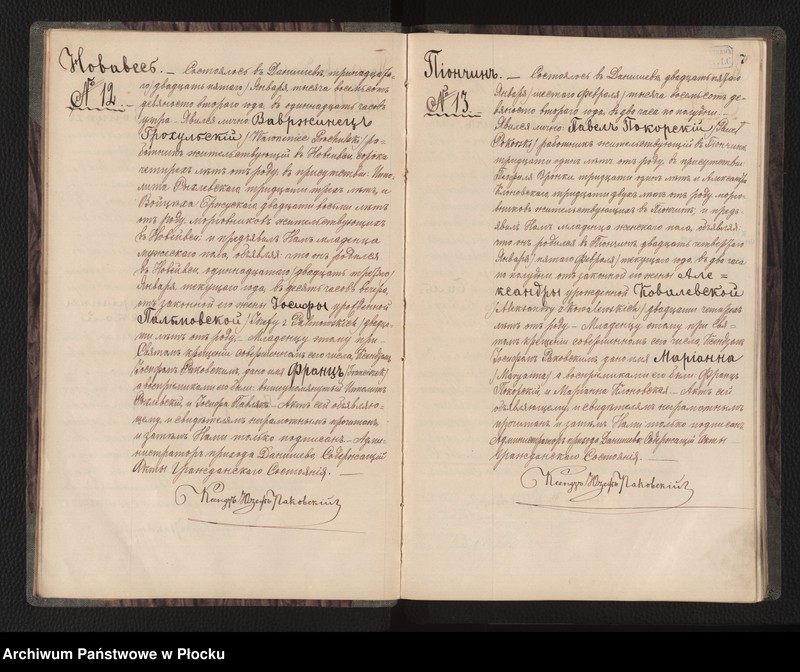 Новавесъ. — Состоялось въ Данишевѣ, тринадцата-
№ 12. го /двадцать пятаго/ Января, тысяча восемьсотъ
девяносто второго года, въ одинадцать часовъ
утра. — Явился лично Вавржинецъ
Грохульскій /Wawrzeniec Grochulski/ ра-
ботникъ жительствующій въ Новейвси сорока
четырехъ лѣтъ отъ роду, въ присутствіи: Ипо-
лита тридцати трехъ лѣтъ, и
Войцеха двадцати восьми лѣтъ
отъ роду, морговниковъ жительствующихъ
въ Новейвси и предъявилъ Намъ младенца
мужескаго пола, объявляя что онъ родился
въ Новейвси одиннадцатаго /двадцать третьяго/
Января, текущаго года, въ десять часовъ вечера
отъ законной его жены Іосефы урожденной
Палтновской двадца-
ти лѣтъ отъ роду. — Младенцу этому при
Святомъ крещеніи совершенномъ его числа, Ксендзомъ
Іосифомъ Раковскимъ, дано имя Францъ /Franciszek/
а восприемниками его были: вышеупомянутый Ипполитъ
и Іосефа Павлякъ. — Актъ сей объявляю-
щему и свидѣтелямъ неграмотнымъ прочитанъ
и затѣмъ Нами только подписанъ. — Адми-
нистраторъ прихода Данишево Содержащій
Акты Гражданскаго Состоянія. —
Ксендзъ Юзефъ Раковскій
7
Піончинъ. — Состоялось въ Данишевѣ, двадцать пятаго
№ 13. Января /шестаго Февраля/ тысяча восемьсотъ де-
вяносто втораго года, въ два часа по полудни. —
Явился лично Павелъ Покорскій /Paweł
Pokorski/ работникъ жительствующій въ Піончинѣ
тридцати одного лѣтъ отъ роду, въ присутствіи
Теофиля Вронка тридцати одного лѣтъ и Александра
Клоновскаго тридцати двухъ лѣтъ отъ роду, морго-
вниковъ жительствующихъ въ Піончинѣ; и предъ-
явилъ Намъ младенца женскаго пола, объявляя
что онъ родился въ Піончинѣ двадцать четвертаго
Января /пятаго Февраля/ текущаго года, въ два часа
по полудни, отъ законной его жены Але=
ксандры урожденной Ковалевской
/Aleksandry z Kowalewskich/ двадцати четырехъ
лѣтъ отъ роду. — Младенцу этому при Свя=
томъ крещеніи совершенномъ его числа, Ксендзомъ
Іосифомъ Раковскимъ, дано имя Маріанна
/Maryanna/, а восприемниками его были: Францъ
Покорскій, и Маріанна Клоновская. — Актъ сей
объявляющему и свидѣтелямъ неграмотнымъ
прочитанъ и затѣмъ Нами только подписанъ
Администраторъ прихода Данишево Содержащій Акты
Гражданскаго Состоянія. —
Ксендзъ Юзефъ Раковскій
Archiwum Państwowe w Płocku